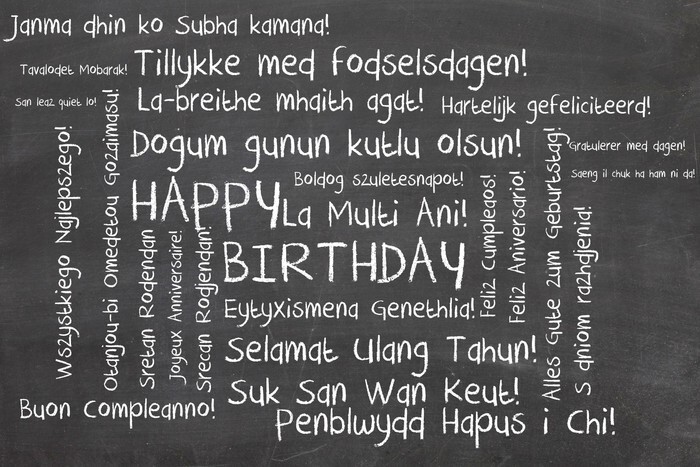 Janma dhin ko Subha kamana!
Tavalodet Mobarak!
Tillykke med fodselsdagen!
San leaz quiet lo!
La-breithe mhaith agat!
Hartelijk gefeliciteerd!
Dogum gunun kutlu olsun!
Gratulerer med dagen!
Boldog szuletesnapot!
Saeng il chuk ha ham ni da!
HAPPY
La Multi Ani!
BIRTHDAY
Wszystkiego Najlepszego!
Otanjou-bi Omedetou Gozaimasu!
Sretan Rodendan
Joyeux Anniversaire!
Srecan Rodjendan!
Feliz Cumpleaos!
Feliz Aniversario!
Alles Gute zum Geburtstag!
S dniom razhdjenia!
Eytyxismena Genethlia!
Selamat Ulang Tahun!
Suk San Wan Keut!
Buon Compleanno!
Penblwydd Hapus i Chi!